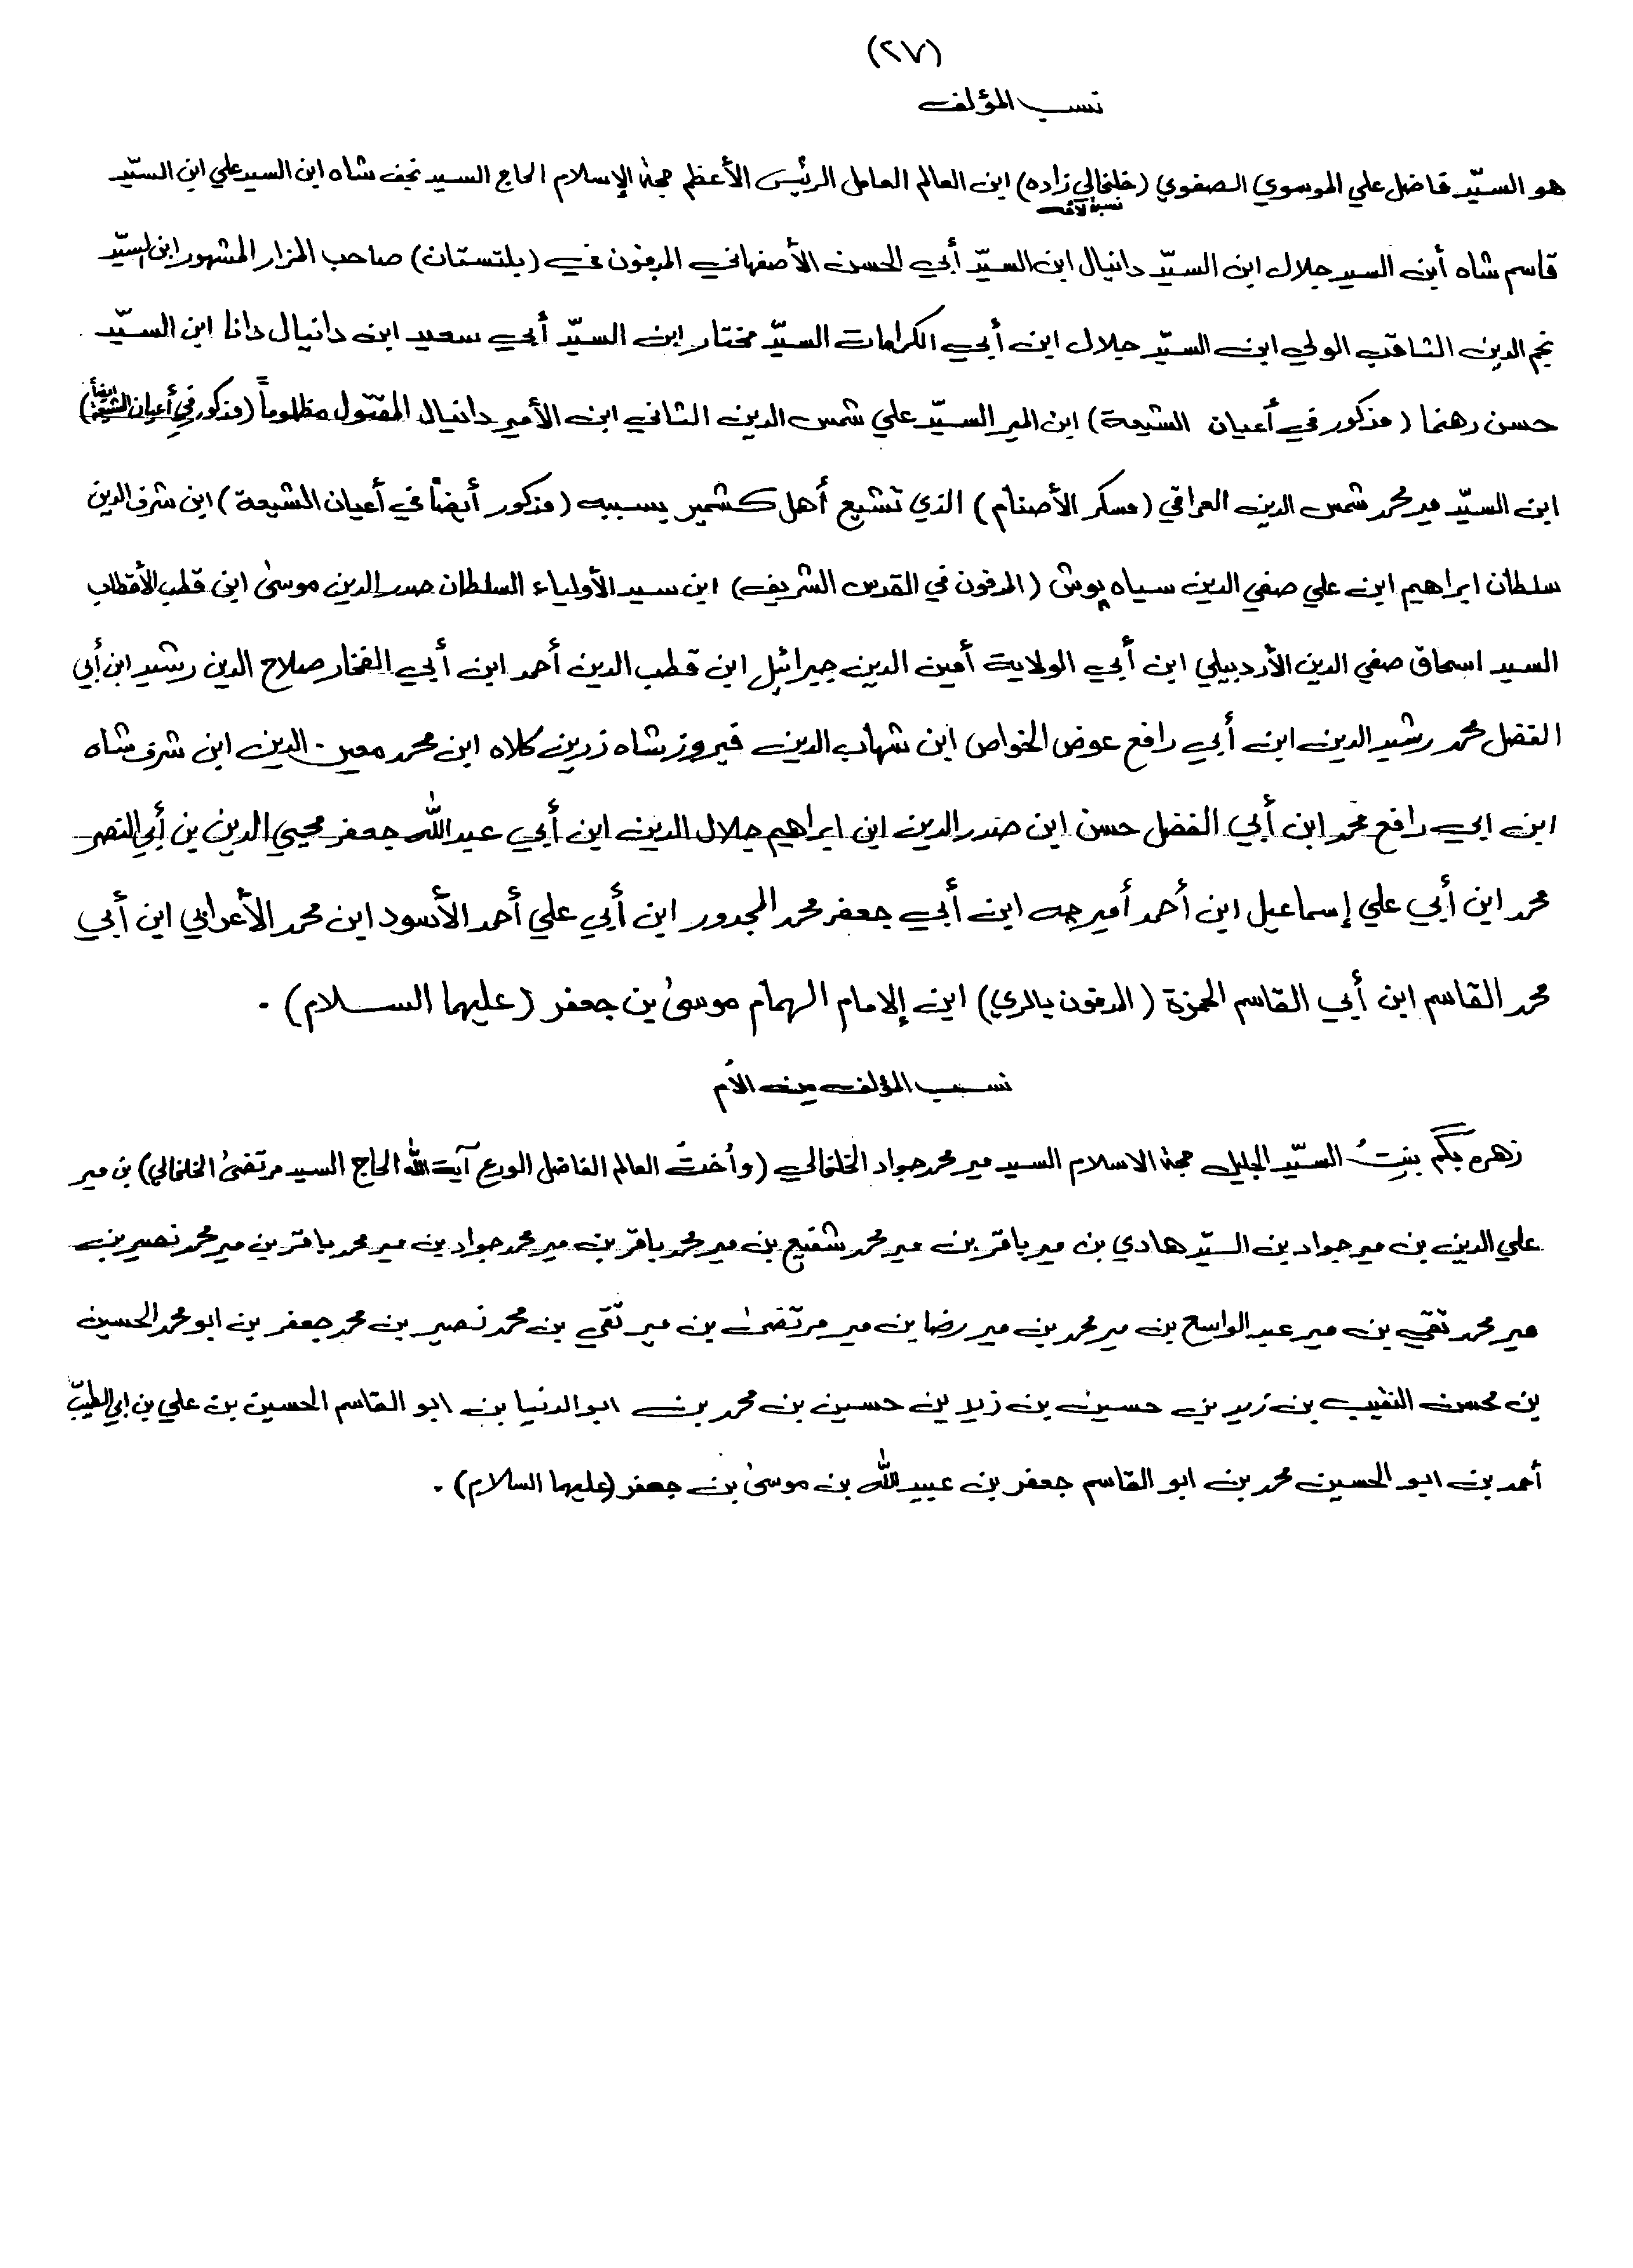 (٢٧)
نسب المؤلف
هو السيّد فاضل علي الموسوي الصفوي (خلخالي زاده) ابن العالم العامل الرئيس الأعظم حجة الإسلام الحاج السيد نجف شاه ابن السيد علي ابن السيّد
نسبة لأمه
قاسم شاه أبن السيد جلال ابن السيّد دانيال ابن السيّد أبي الحسن الأصفهاني المدفون في (بلتستان) صاحب المزار المشهور ابن السيّد
نجم الدين الثاقب الولي ابن السيّد جلال ابن أبي الكرامات السيّد مختار ابن السيّد أبي سعيد ابن دانيال دانا ابن السيّد
حسن رهنما (مذكور في أعيان الشيعة) ابن المير السيّد علي شمس الدين الثاني ابن الأمير دانيال المقتول مظلوماً (مذكور في أعيان الشيعة أيضاً)
ابن السيّد مير محمد شمس الدين العراقي (مسكر الأصنام) الذي تشيع أهل كشمير بسببه (مذكور أيضاً في أعيان الشيعة) ابن شرف الدين
سلطان ابراهيم ابن علي صفي الدين سياه پوش (المدفون في القدس الشريف) ابن سيد الأولياء السلطان صدر الدين موسىٰ ابن قطب الأقطاب
السيد اسحاق صفي الدين الأردبيلي ابن أبي الولاية أمين الدين جبرائيل ابن قطب الدين أحمد ابن أبي الفخار صلاح الدين رشيد ابن أبي
الفضل محمد رشيد الدين ابن أبي رافع عوض الخواص ابن شهاب الدين فيروز شاه زرين كلاه ابن محمد معين الدين ابن شرف شاه
ابن ابي رافع محمد ابن أبي الفضل حسن ابن صدر الدين ابن ابراهيم جلال الدين ابن أبي عبد الله جعفر محيي الدين بن أبي النصر
محمد ابن أبي علي إسماعيل ابن أحمد أميرجه ابن أبي جعفر محمد المجدور ابن أبي علي أحمد الأسود ابن محمد الأعرابي ابن أبي
محمد القاسم ابن أبي القاسم الحمزة (المدفون بالري) ابن الإمام الهمام موسىٰ بن جعفر (عليهما السلام) .
نسب المؤلف من الأم
زهره بگم بنتُ السيّد الجليل حجة الاسلام السيد مير محمد جواد الخلخالي (وأُختُ العالم الفاضل الورع آية الله الحاج السيد مرتضىٰ الخلخالي) بن مير
علي الدين بن مير جواد بن السيّد هادي بن مير باقر بن مير محمد شفيع بن مير محمد باقر بن مير محمد جواد بن مير محمد باقر بن مير محمد نصير بن
مير محمد تقي بن مير عبد الواسع بن مير محمد بن مير رضا بن مير مرتضىٰ بن مير تقي بن محمد نصير بن محمد جعفر بن ابو محمد الحسين
بن محسن النقيب بن زيد بن حسين بن زيد بن حسين بن محمد بن ابو الدنيا بن ابو القاسم الحسين بن علي بن ابي الطيبّ
أحمد بن ابو الحسين محمد بن ابو القاسم جعفر بن عبيد الله بن موسىٰ بن جعفر (عليهما السلام) .